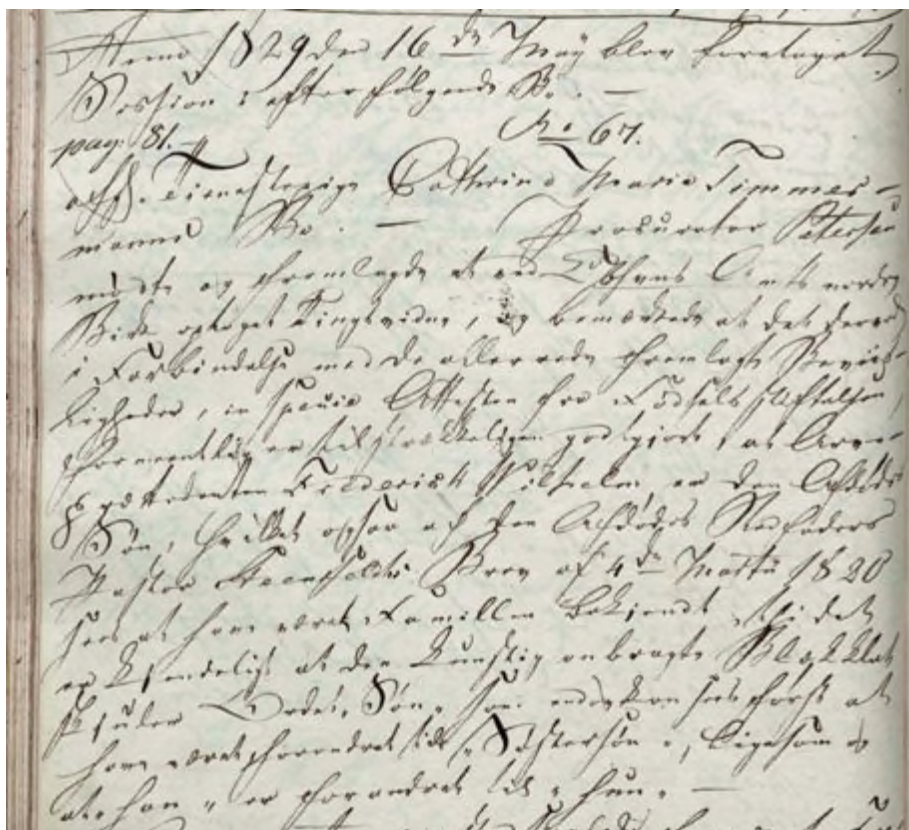 Anno 1829 den 16de Maÿ blev foretaget
Session i efterfølgende Bo. —
No 67.
pag: 81. —
afd. Tienestepige Cathrine Marie Timmer-
manns Bo. — Procurator Petersen
mødte og fremlagde et ved Kiøbhavns Amts nordre
Birk optaget Tingsvidne, og bemærkede at det derved
i Forbindelse med de allerede fremlagte Beviis-
ligheder, in specie Attesten fra Fødselsstiftelsen,
formeentlig er tilstrækkeligen godtgiort, at Arve-
prætendenten Frederich Wilhelm er den Afdødes
Søn, hvilket ogsaa af den Afdødes Stedfaders
Pastor Steenfeldts Brev af 4de Martii 1820
sees at have været Familien bekjendt, thi det
er kjendeligt at den kunstig anbragte Blækklat
skjuler Ordet "Søn" som endnu kan sees først at
have været forandret til "Søstersøn", ligesom og
at "han" er forandret til "hun". —